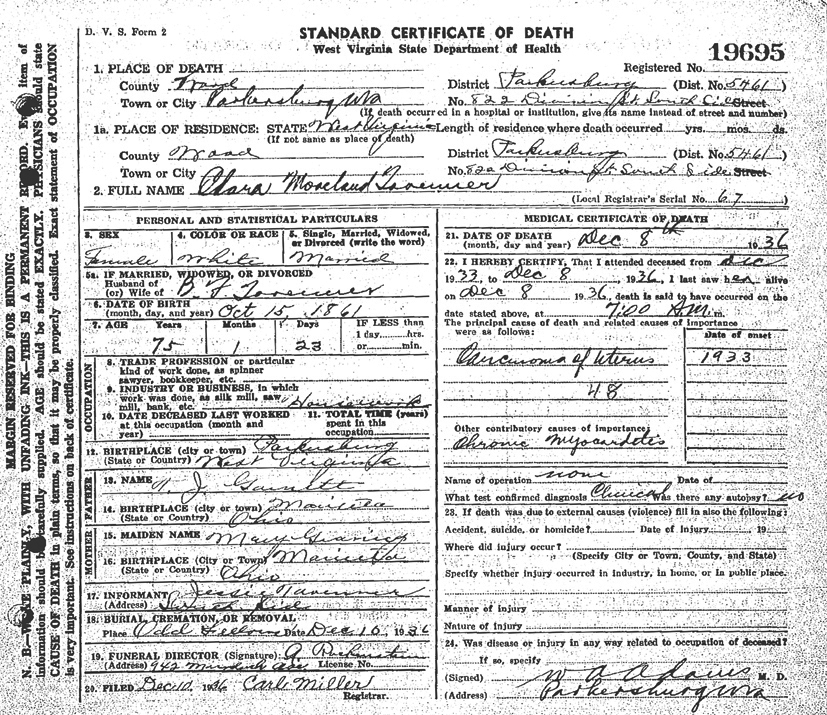 D. V. S. Form 2
STANDARD CERTIFICATE OF DEATH
West Virginia State Department of Health
19695
Registered No.
1. PLACE OF DEATH
County Wood District Parkersburg (Dist. No. 5461)
Town or City Parkersburg WVa No. 822 Division St South Side Street
(If death occurred in a hospital or institution, give its name instead of street and number)
1a. PLACE OF RESIDENCE: STATE West Virginia Length of residence where death occurred yrs. mos. ds.
(If not same as place of death)
County Wood District Parkersburg (Dist. No. 5461)
Town or City No. 822 Division St South Side Street
2. FULL NAME Clara Moreland Tavenner
(Local Registrar's Serial No. 67)
PERSONAL AND STATISTICAL PARTICULARS
3. SEX 4. COLOR OR RACE 5. Single, Married, Widowed, or Divorced (write the word)
Female White Married
5a. IF MARRIED, WIDOWED, OR DIVORCED
Husband of
(or) Wife of B. F. Tavenner
6. DATE OF BIRTH
(month, day, and year) Oct 15, 1861
7. AGE Years Months Days IF LESS than
1 day, hrs.
75 1 23 or min.
OCCUPATION
8. TRADE PROFESSION or particular
kind of work done, as spinner
sawyer, bookkeeper, etc.
9. INDUSTRY OR BUSINESS, in which
work was done, as silk mill, saw
mill, bank, etc. Housework
10. DATE DECEASED LAST WORKED
at this occupation (month and
year)
11. TOTAL TIME (years)
spent in this
occupation
12. BIRTHPLACE (city or town) Parkersburg
(State or Country) West Virginia
FATHER
13. NAME J. Garnett
14. BIRTHPLACE (city or town) Marietta
(State or Country) Ohio
MOTHER
15. MAIDEN NAME Mary Gearing
16. BIRTHPLACE (City or Town) Marietta
(State or Country) Ohio
17. INFORMANT Jessie Tavenner
(Address) South Side
18. BURIAL, CREMATION, OR REMOVAL
Place Odd Fellows Date Dec 10 1936
19. FUNERAL DIRECTOR (Signature)
(Address) 942 Murdoch Ave License No.
20. FILED Dec 10 1936 Carl Miller
Registrar.
MEDICAL CERTIFICATE OF DEATH
21. DATE OF DEATH
(month, day and year) Dec 8th 1936
22. I HEREBY CERTIFY, That I attended deceased from Dec
1933 to Dec 8 1936, I last saw her alive
on Dec 8 1936, death is said to have occurred on the
date stated above, at 7:00 A.m.
The principal cause of death and related causes of importance
were as follows: Date of onset
Carcinoma of Uterus 1933
48
Other contributory causes of importance:
Chronic Myocardotis
Name of operation none Date of
What test confirmed diagnosis Clinical Was there any autopsy? no
23. If death was due to external causes (violence) fill in also the following:
Accident, suicide, or homicide? Date of injury 19
Where did injury occur?
(Specify City or Town, County, and State)
Specify whether injury occurred in industry, in home, or in public place.
Manner of injury
Nature of injury
24. Was disease or injury in any way related to occupation of deceased?
If so, specify
(Signed) W A Adams M. D.
(Address) Parkersburg WVa
MARGIN RESERVED FOR BINDING
N. B.—WRITE PLAINLY, WITH UNFADING INK—THIS IS A PERMANENT RECORD. Every item of
information should be carefully supplied. AGE should be stated EXACTLY. PHYSICIANS should state
CAUSE OF DEATH in plain terms, so that it may be properly classified. Exact statement of OCCUPATION
is very important. See instructions on back of certificate.